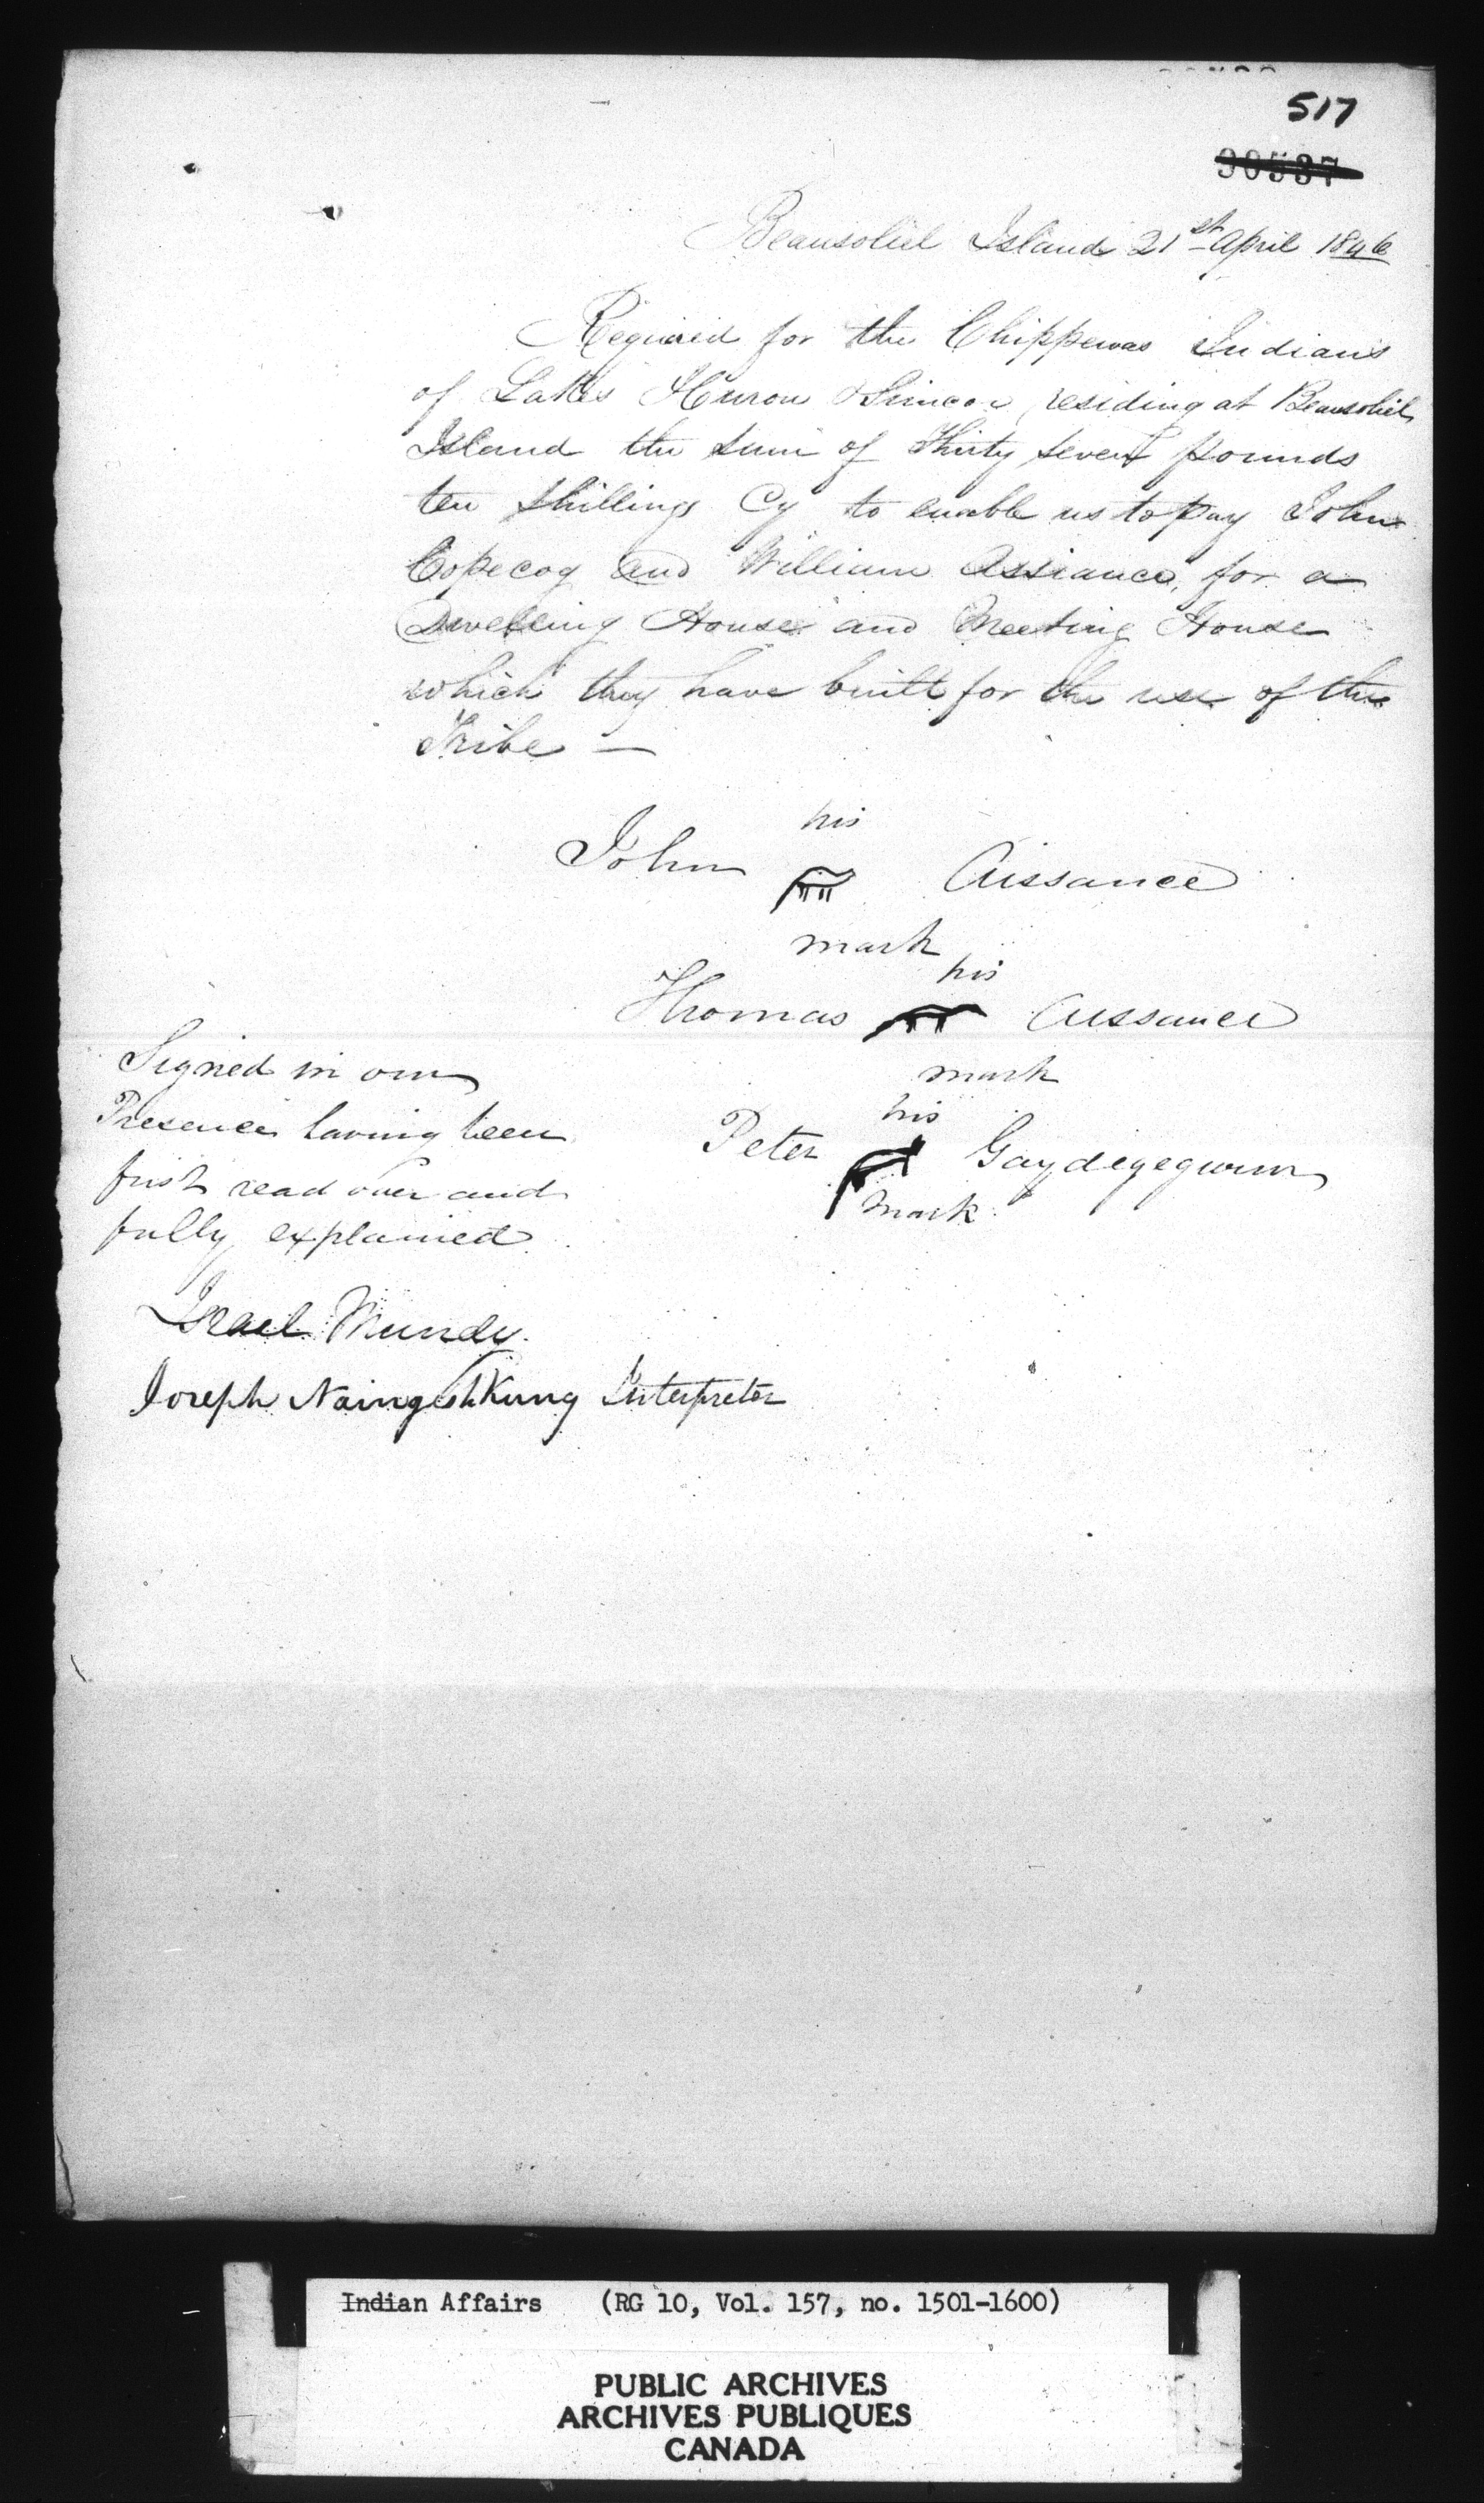 517
90537
Beausoliel Island 21st April 1846
Required for the Chippewas Indians
of Lakes Huron & Simcoe residing at Beausoliel
Island the sum of Thirty seven pounds
ten shillings Cy to enable us to pay John
Copecog and William Assiance, for a
Dwelling House and Meeting House
which they have built for the use of the
Tribe —
his
John Aissance
mark
his
Thomas Aissance
mark
his
Peter Gaydegegwun
mark
Signed in our
Presence having been
first read over and
fully explained
Israel Mundy.
Joseph Naingishkung Interpreter
Indian Affairs (RG 10, Vol. 157, no. 1501-1600)
PUBLIC ARCHIVES
ARCHIVES PUBLIQUES
CANADA